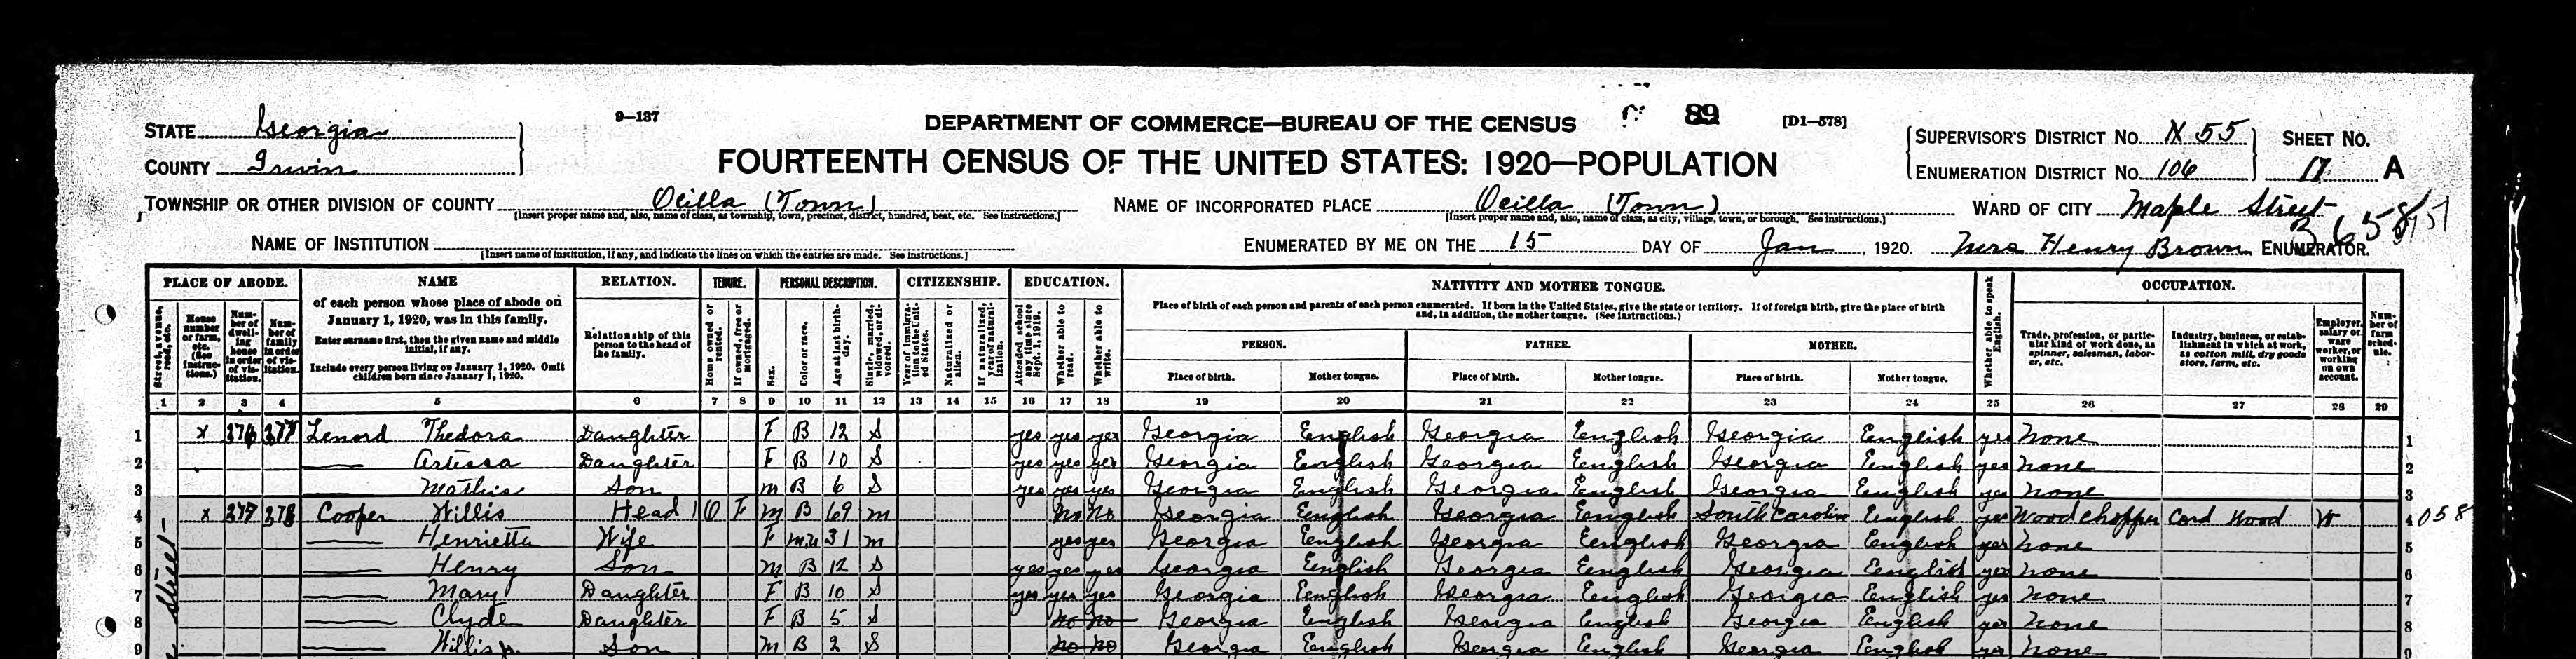 89
9—137
[D1—578]
STATE Georgia
COUNTY Irwin
DEPARTMENT OF COMMERCE—BUREAU OF THE CENSUS
FOURTEENTH CENSUS OF THE UNITED STATES: 1920—POPULATION
SUPERVISOR'S DISTRICT No. X 55
ENUMERATION DISTRICT No. 106
SHEET No.
A
TOWNSHIP OR OTHER DIVISION OF COUNTY Ocilla (Town)
[Insert proper name and, also, name of class, as township, town, precinct, district, hundred, beat, etc. See instructions.]
NAME OF INCORPORATED PLACE Ocilla (Town)
[Insert proper name and, also, name of class, as city, village, town, or borough. See instructions.]
WARD OF CITY Maple Street
NAME OF INSTITUTION
[Insert name of institution, if any, and indicate the lines on which the entries are made. See instructions.]
ENUMERATED BY ME ON THE 15 DAY OF Jan, 1920. Mrs Henry Brown ENUMERATOR.
PLACE OF ABODE.
Street, avenue, road, etc.
House number or farm, etc. (See instructions.)
Number of dwelling house in order of visitation.
Number of family in order of visitation.
NAME
of each person whose place of abode on January 1, 1920, was in this family.
Enter surname first, then the given name and middle initial, if any.
Include every person living on January 1, 1920. Omit children born since January 1, 1920.
RELATION.
Relationship of this person to the head of the family.
TENURE.
Home owned or rented.
If owned, free or mortgaged.
PERSONAL DESCRIPTION.
Sex.
Color or race.
Age at last birthday.
Single, married, widowed, or divorced.
CITIZENSHIP.
Year of immigration to the United States.
Naturalized or alien.
If naturalized, year of naturalization.
EDUCATION.
Attended school any time since Sept. 1, 1919.
Whether able to read.
Whether able to write.
NATIVITY AND MOTHER TONGUE.
Place of birth of each person and parents of each person enumerated. If born in the United States, give the state or territory. If of foreign birth, give the place of birth and, in addition, the mother tongue. (See instructions.)
PERSON.
Place of birth.
Mother tongue.
FATHER.
Place of birth.
Mother tongue.
MOTHER.
Place of birth.
Mother tongue.
Whether able to speak English.
OCCUPATION.
Trade, profession, or particular kind of work done, as spinner, salesman, laborer, etc.
Industry, business, or establishment in which at work, as cotton mill, dry goods store, farm, etc.
Employer, salary or wage worker, or working on own account.
Number of farm schedule.
1 2 3 4 5 6 7 8 9 10 11 12 13 14 15 16 17 18 19 20 21 22 23 24 25 26 27 28 29
1 X 376 377 Lenord Thedora Daughter F B 12 S yes yes yes Georgia English Georgia English Georgia English yes None 1
2 Artessa Daughter F B 10 S yes yes yes Georgia English Georgia English Georgia English yes None 2
3 Mathis Son M B 6 S yes yes yes Georgia English Georgia English Georgia English yes None 3
4 X 377 378 Cooper Willis Head 1 O F M B 69 M No No Georgia English Georgia English South Carolina English yes Wood Chopper Cord Wood W 4 058
5 Henrietta Wife F Mu 31 M yes yes Georgia English Georgia English Georgia English yes None 5
6 Henry Son M B 12 S yes yes yes Georgia English Georgia English Georgia English yes None 6
7 Mary Daughter F B 10 S yes yes yes Georgia English Georgia English Georgia English yes None 7
8 Clyde Daughter F B 5 S no no Georgia English Georgia English Georgia English yes None 8
9 Willis Jr. Son M B 2 S no no Georgia English Georgia English Georgia English yes None 9
Street